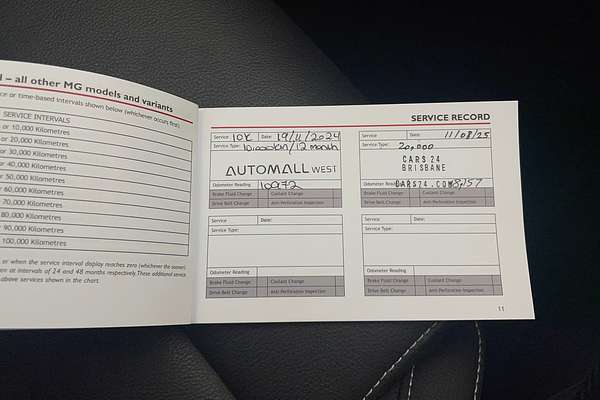 – all other MG models and variants
or time-based intervals shown below (whichever occurs first)
SERVICE INTERVALS
or 10,000 Kilometres
or 20,000 Kilometres
or 30,000 Kilometres
or 40,000 Kilometres
or 50,000 Kilometres
or 60,000 Kilometres
70,000 Kilometres
80,000 Kilometres
90,000 Kilometres
100,000 Kilometres
or when the service interval display reaches zero (whichever the sooner)
at intervals of 24 and 48 months respectively. These additional service
above services shown in the chart.
SERVICE RECORD
Service 10K Date: 19/11/2024
Service Type: 10,000km/12 month
AUTOMALL WEST
Odometer Reading 10972
Brake Fluid Change Coolant Change
Drive Belt Change Anti-Perforation Inspection
Service Date: 11/08/25
Service Type: 20,000
CARS 24
BRISBANE
Odometer Reading CARS24.COM
Brake Fluid Change Coolant Change
Drive Belt Change Anti-Perforation Inspection
Service Date:
Service Type:
Odometer Reading
Brake Fluid Change Coolant Change
Drive Belt Change Anti-Perforation Inspection
Service Date:
Service Type:
Odometer Reading
Brake Fluid Change Coolant Change
Drive Belt Change Anti-Perforation Inspection
11